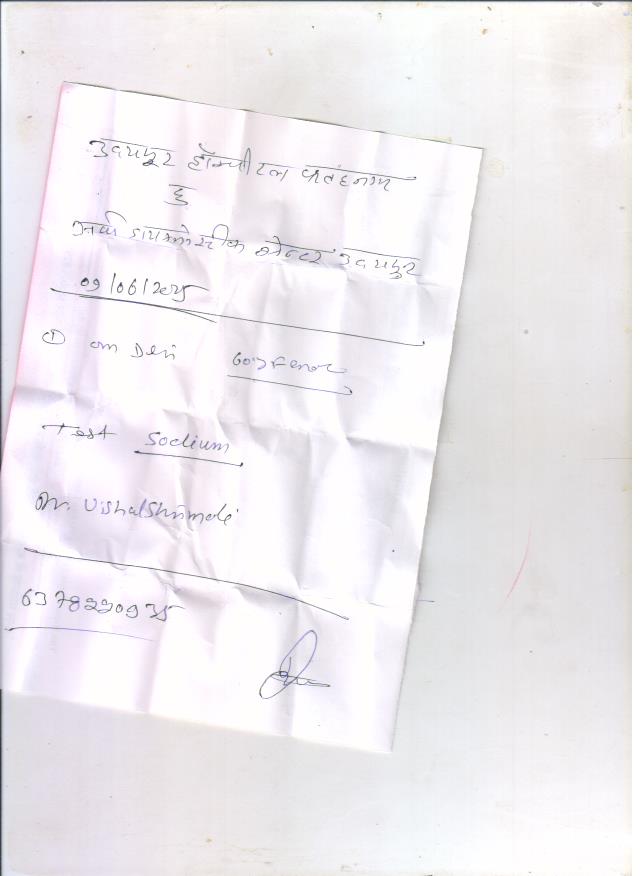 उदयपुर हॉस्पीटल
टू
अर्थ डायग्नोस्टीक सेन्टर उदयपुर
09/06/2025
① Om Devi 60y Female
Test Sodium
Dr. Vishal Shrimali
6378220935